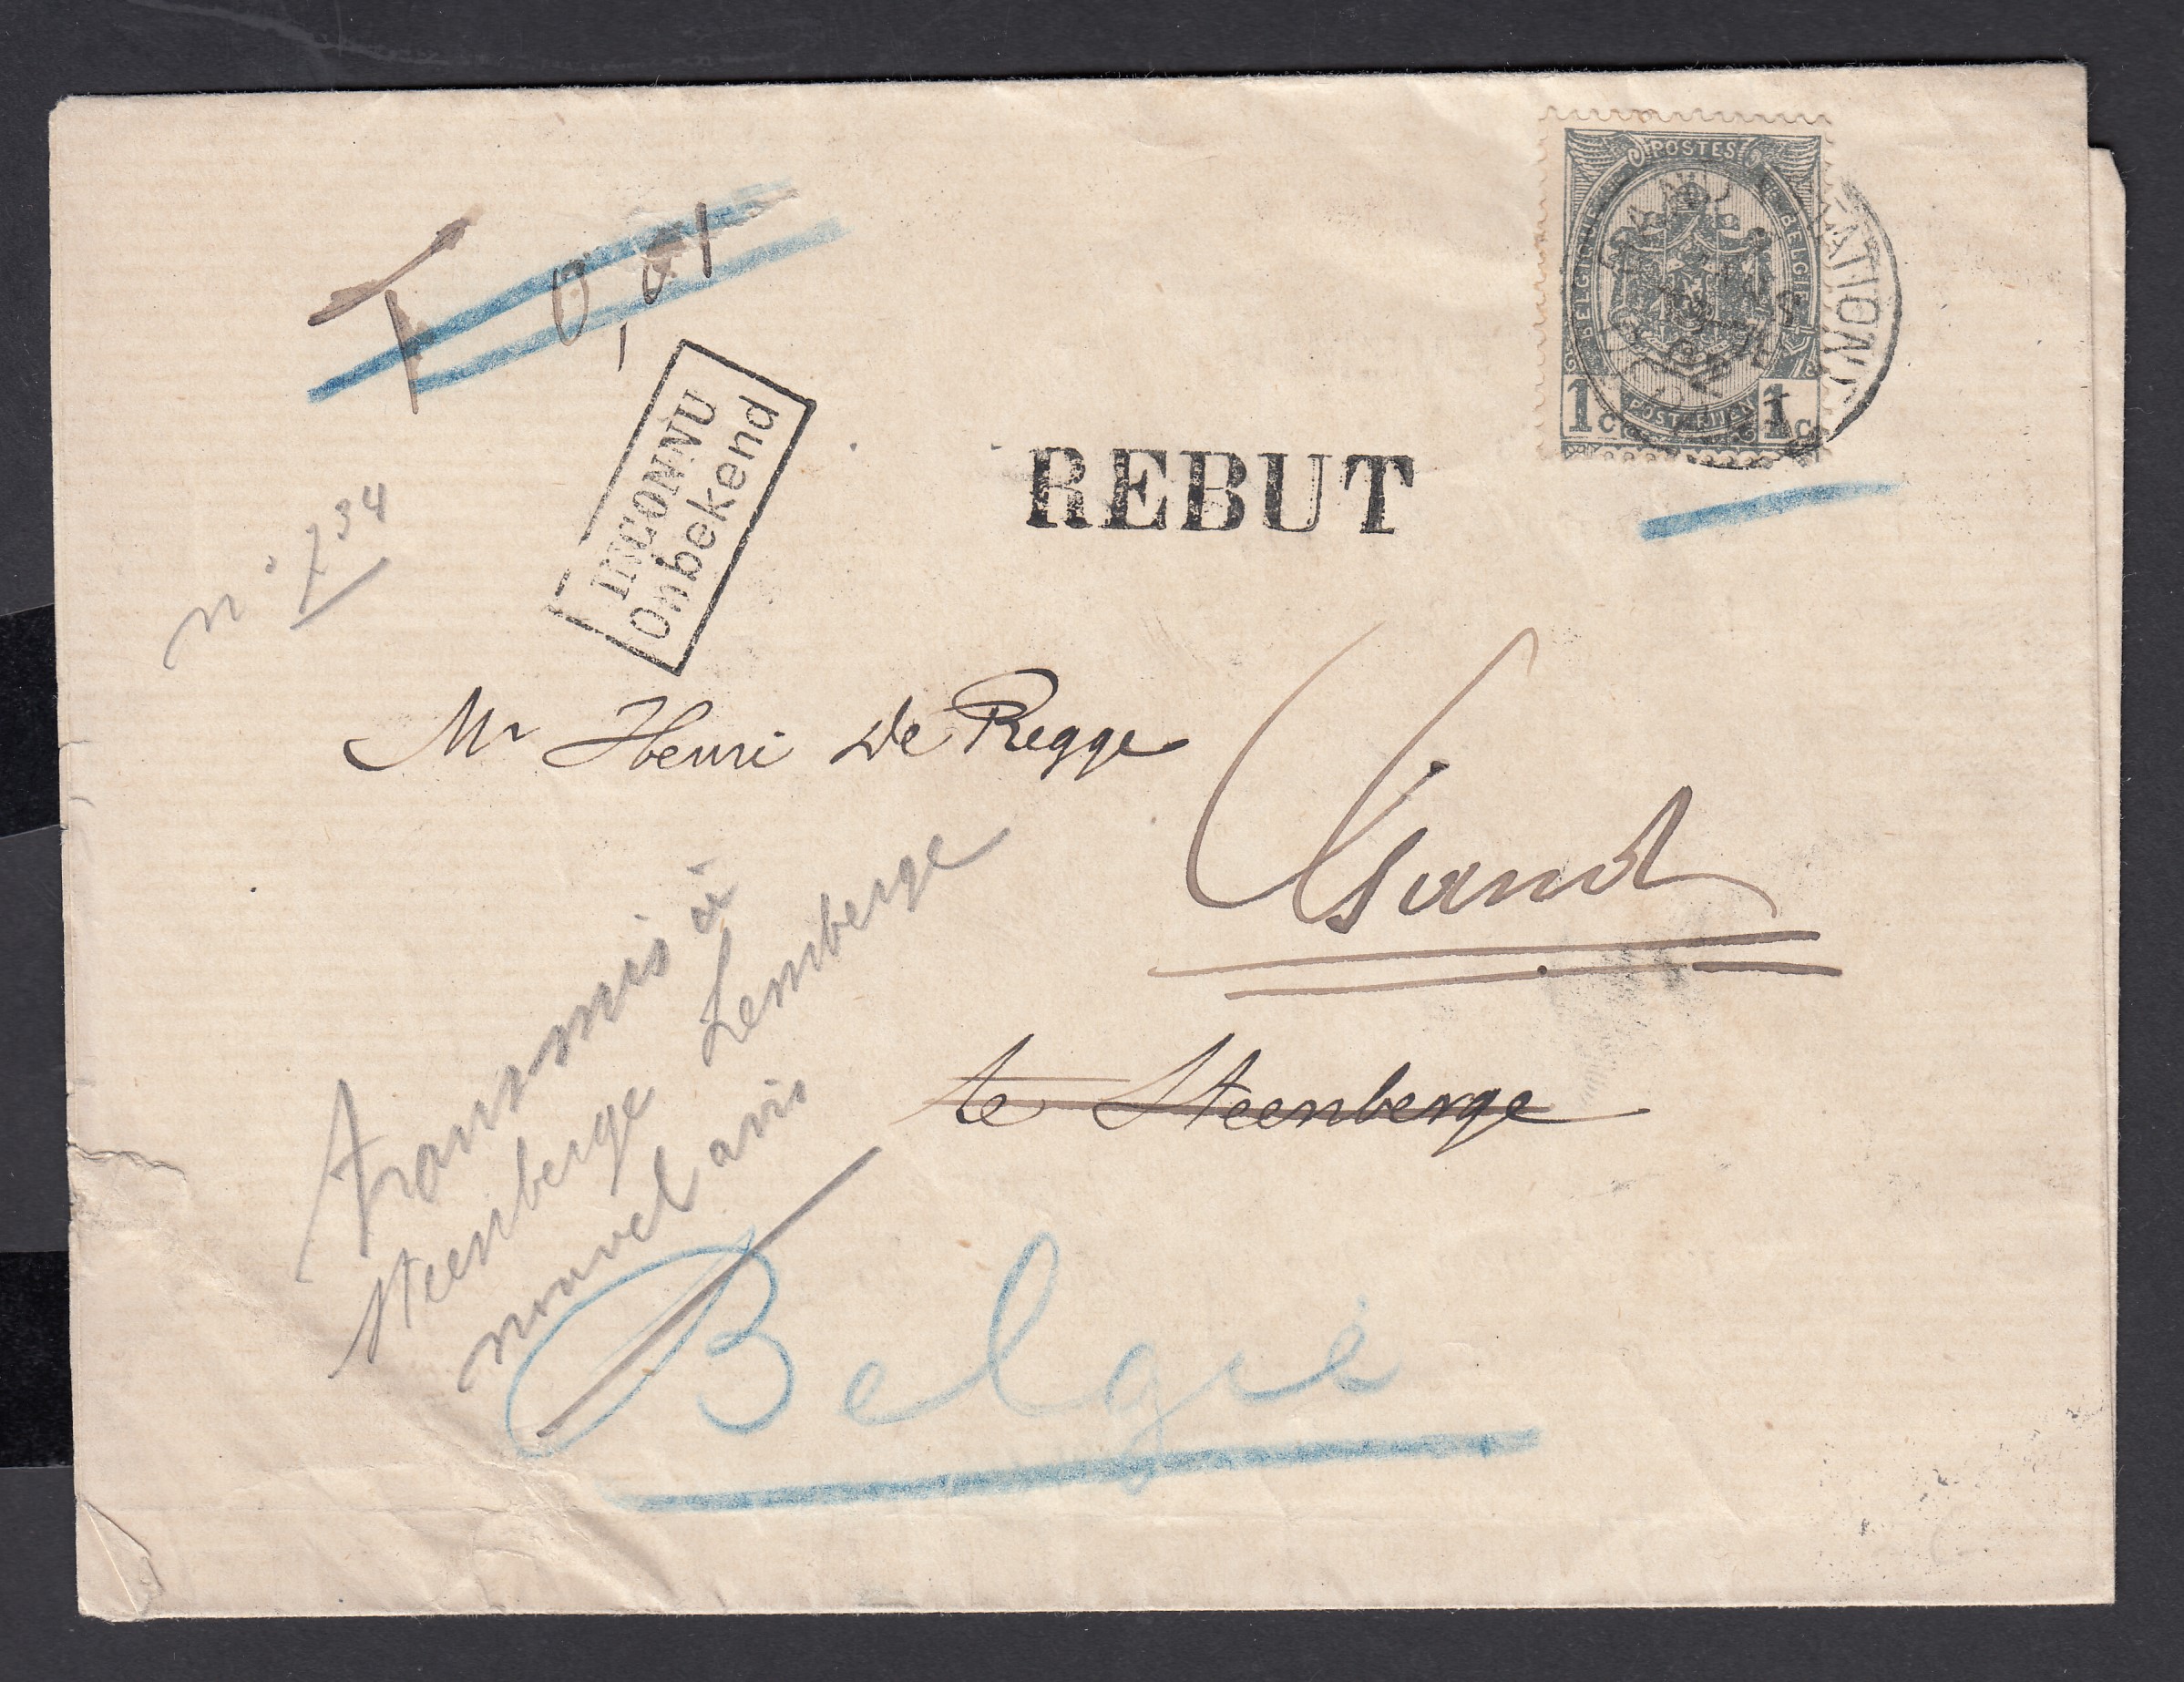 POSTES
BELGIQUE
BELGIE
POSTERIJEN
1c
1c
T 0,01
INCONNU
Onbekend
REBUT
Mr Henri De Regge
te Steenberge
transmis à
Steenberge Lemberge
nouvel avis
België